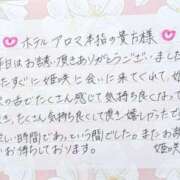 ホテル アロマ本指の貴方様
昨日はお誘い頂きありがとうございました
たすぐに姫咲と会いに来てくれて、
の舌がたくさん感じて気持ち良くなって
たくさん気持ち良くして頂き嬉しかったで
楽しい時間であっという間でした。またお
お待ちしております。
姫咲